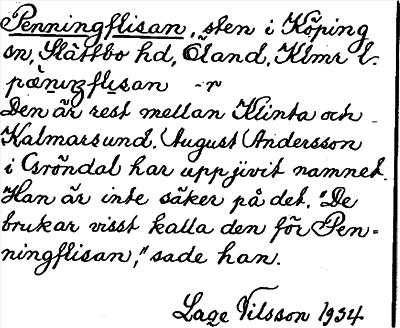 Penningflisan, sten i Köping
sn, Slättbo hd, Öland, Klmr l.
pæniŋflisan -r
Den är rest mellan Klinta och
Kalmarsund. August Andersson
i Gröndal har uppjivit namnet.
Han är inte säker på det. "De
brukar visst kalla den för Pen-
ningflisan," sade han.
Lage Nilsson 1934